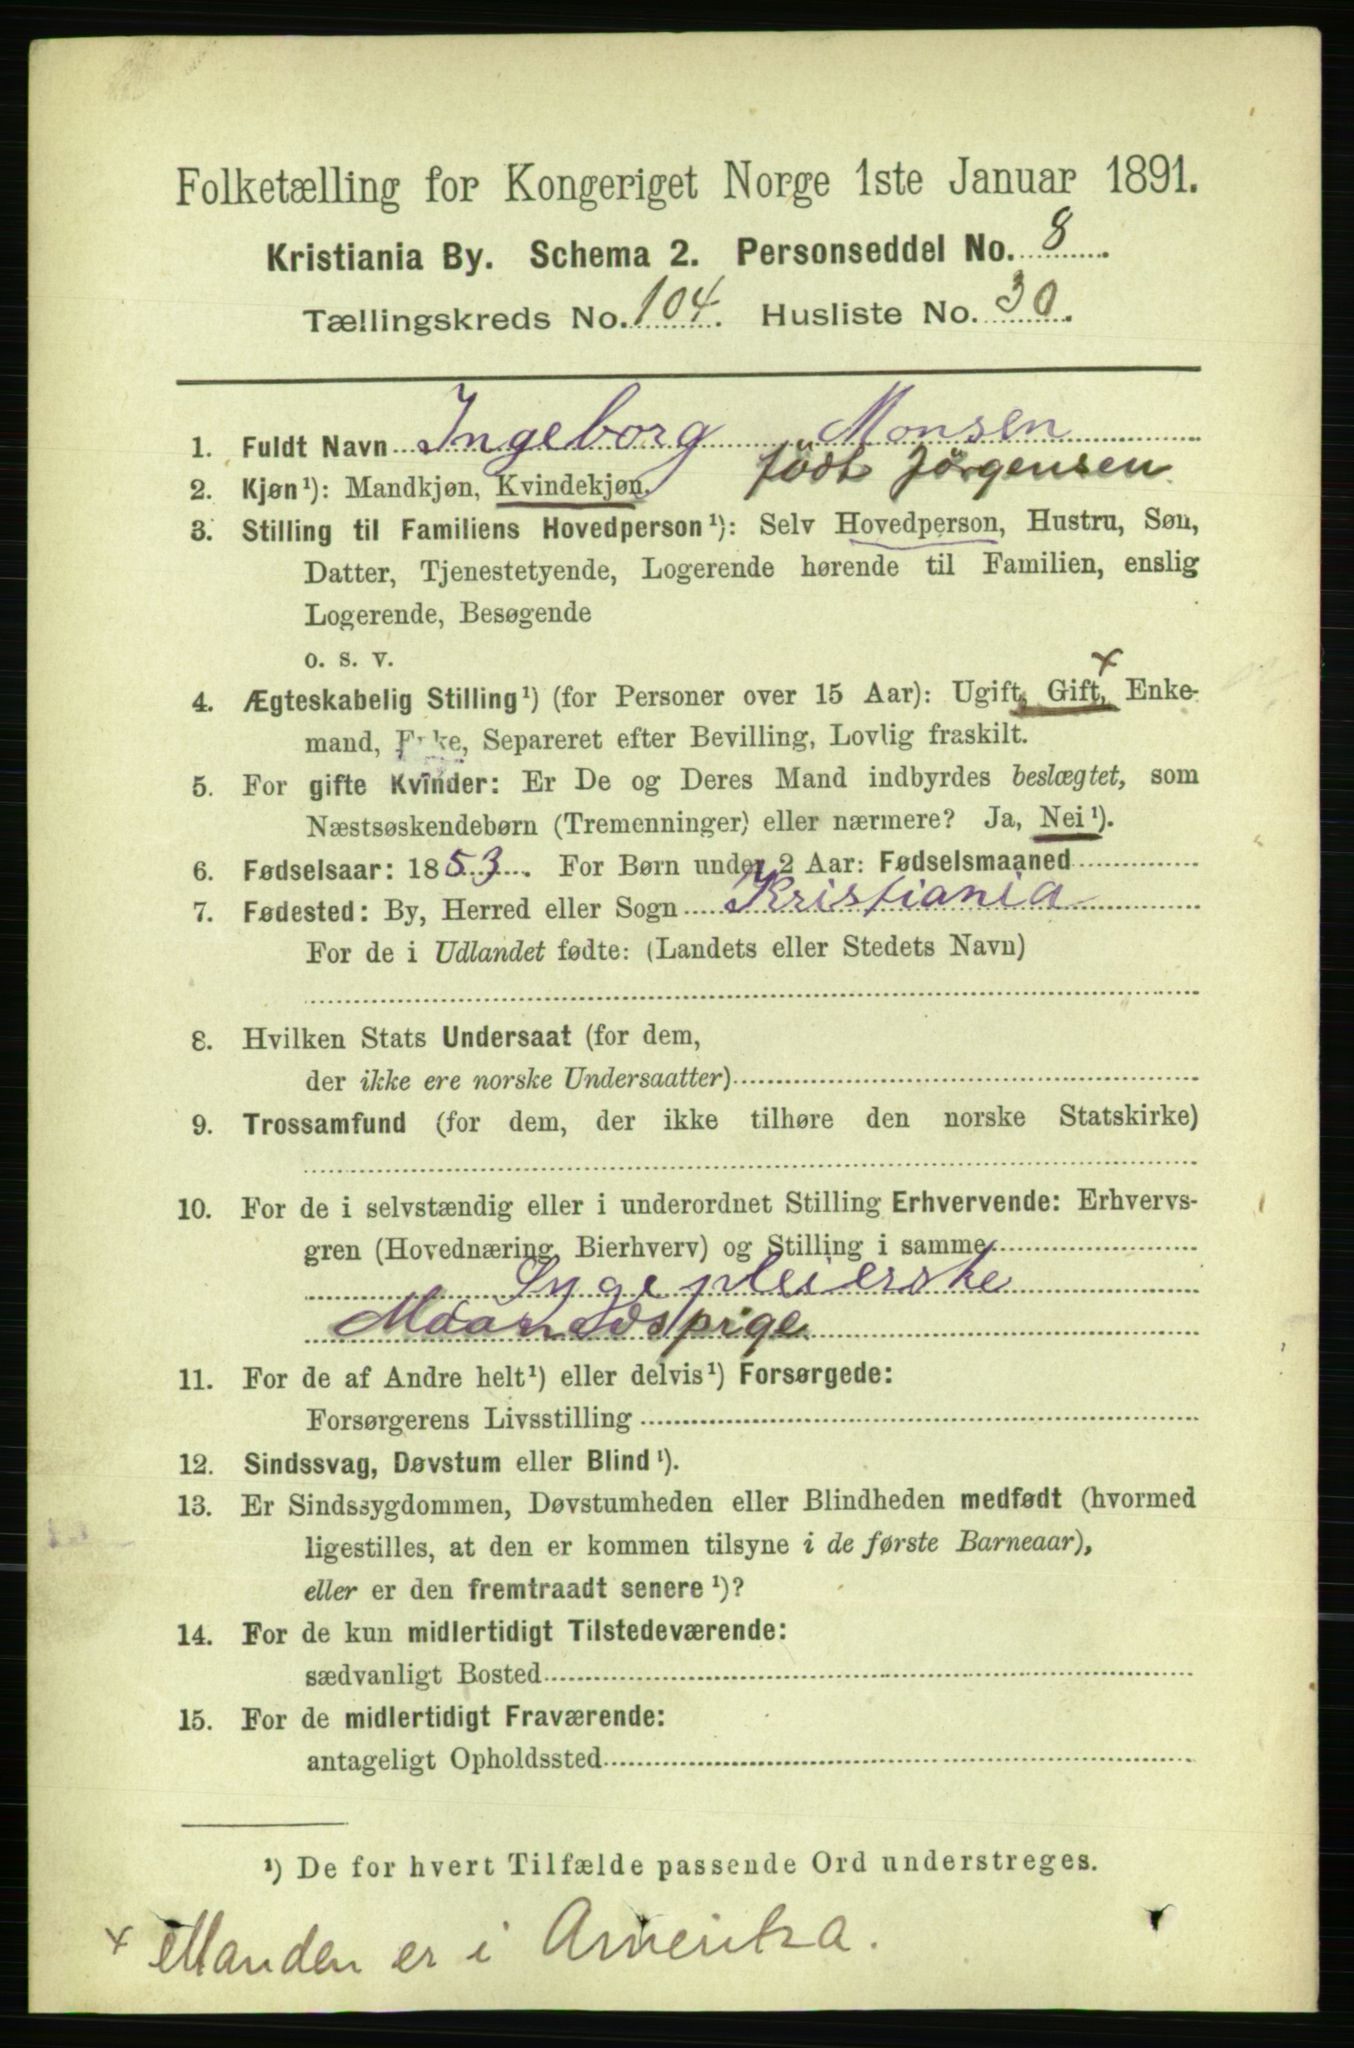 Folketælling for Kongeriget Norge 1ste Januar 1891.
Kristiania By. Schema 2. Personseddel No. 8
Tællingskreds No. 104. Husliste No. 30.
1. Fuldt Navn Ingeborg Monsen
født Jørgensen
2. Kjøn¹): Mandkjøn, Kvindekjøn.
3. Stilling til Familiens Hovedperson¹): Selv Hovedperson, Hustru, Søn,
Datter, Tjenestetyende, Logerende hørende til Familien, enslig
Logerende, Besøgende
o. s. v.
×
4. Ægteskabelig Stilling¹) (for Personer over 15 Aar): Ugift, Gift, Enke-
mand, Enke, Separeret efter Bevilling, Lovlig fraskilt.
5. For gifte Kvinder: Er De og Deres Mand indbyrdes beslægtet, som
Næstsøskendebørn (Tremenninger) eller nærmere? Ja, Nei¹).
6. Fødselsaar: 1853. For Børn under 2 Aar: Fødselsmaaned
7. Fødested: By, Herred eller Sogn Kristiania
For de i Udlandet fødte: (Landets eller Stedets Navn)
8. Hvilken Stats Undersaat (for dem,
der ikke ere norske Undersaatter)
9. Trossamfund (for dem, der ikke tilhøre den norske Statskirke)
10. For de i selvstændig eller i underordnet Stilling Erhvervende: Erhvervs-
gren (Hovednæring, Bierhverv) og Stilling i samme
Sygepleierske
Maanedspige
11. For de af Andre helt¹) eller delvis¹) Forsørgede:
Forsørgerens Livsstilling
12. Sindssvag, Døvstum eller Blind¹).
13. Er Sindssygdommen, Døvstumheden eller Blindheden medfødt (hvormed
ligestilles, at den er kommen tilsyne i de første Barneaar),
eller er den fremtraadt senere¹)?
14. For de kun midlertidigt Tilstedeværende:
sædvanligt Bosted
15. For de midlertidigt Fraværende:
antageligt Opholdssted
¹) De for hvert Tilfælde passende Ord understreges.
× Manden er i Amerika.